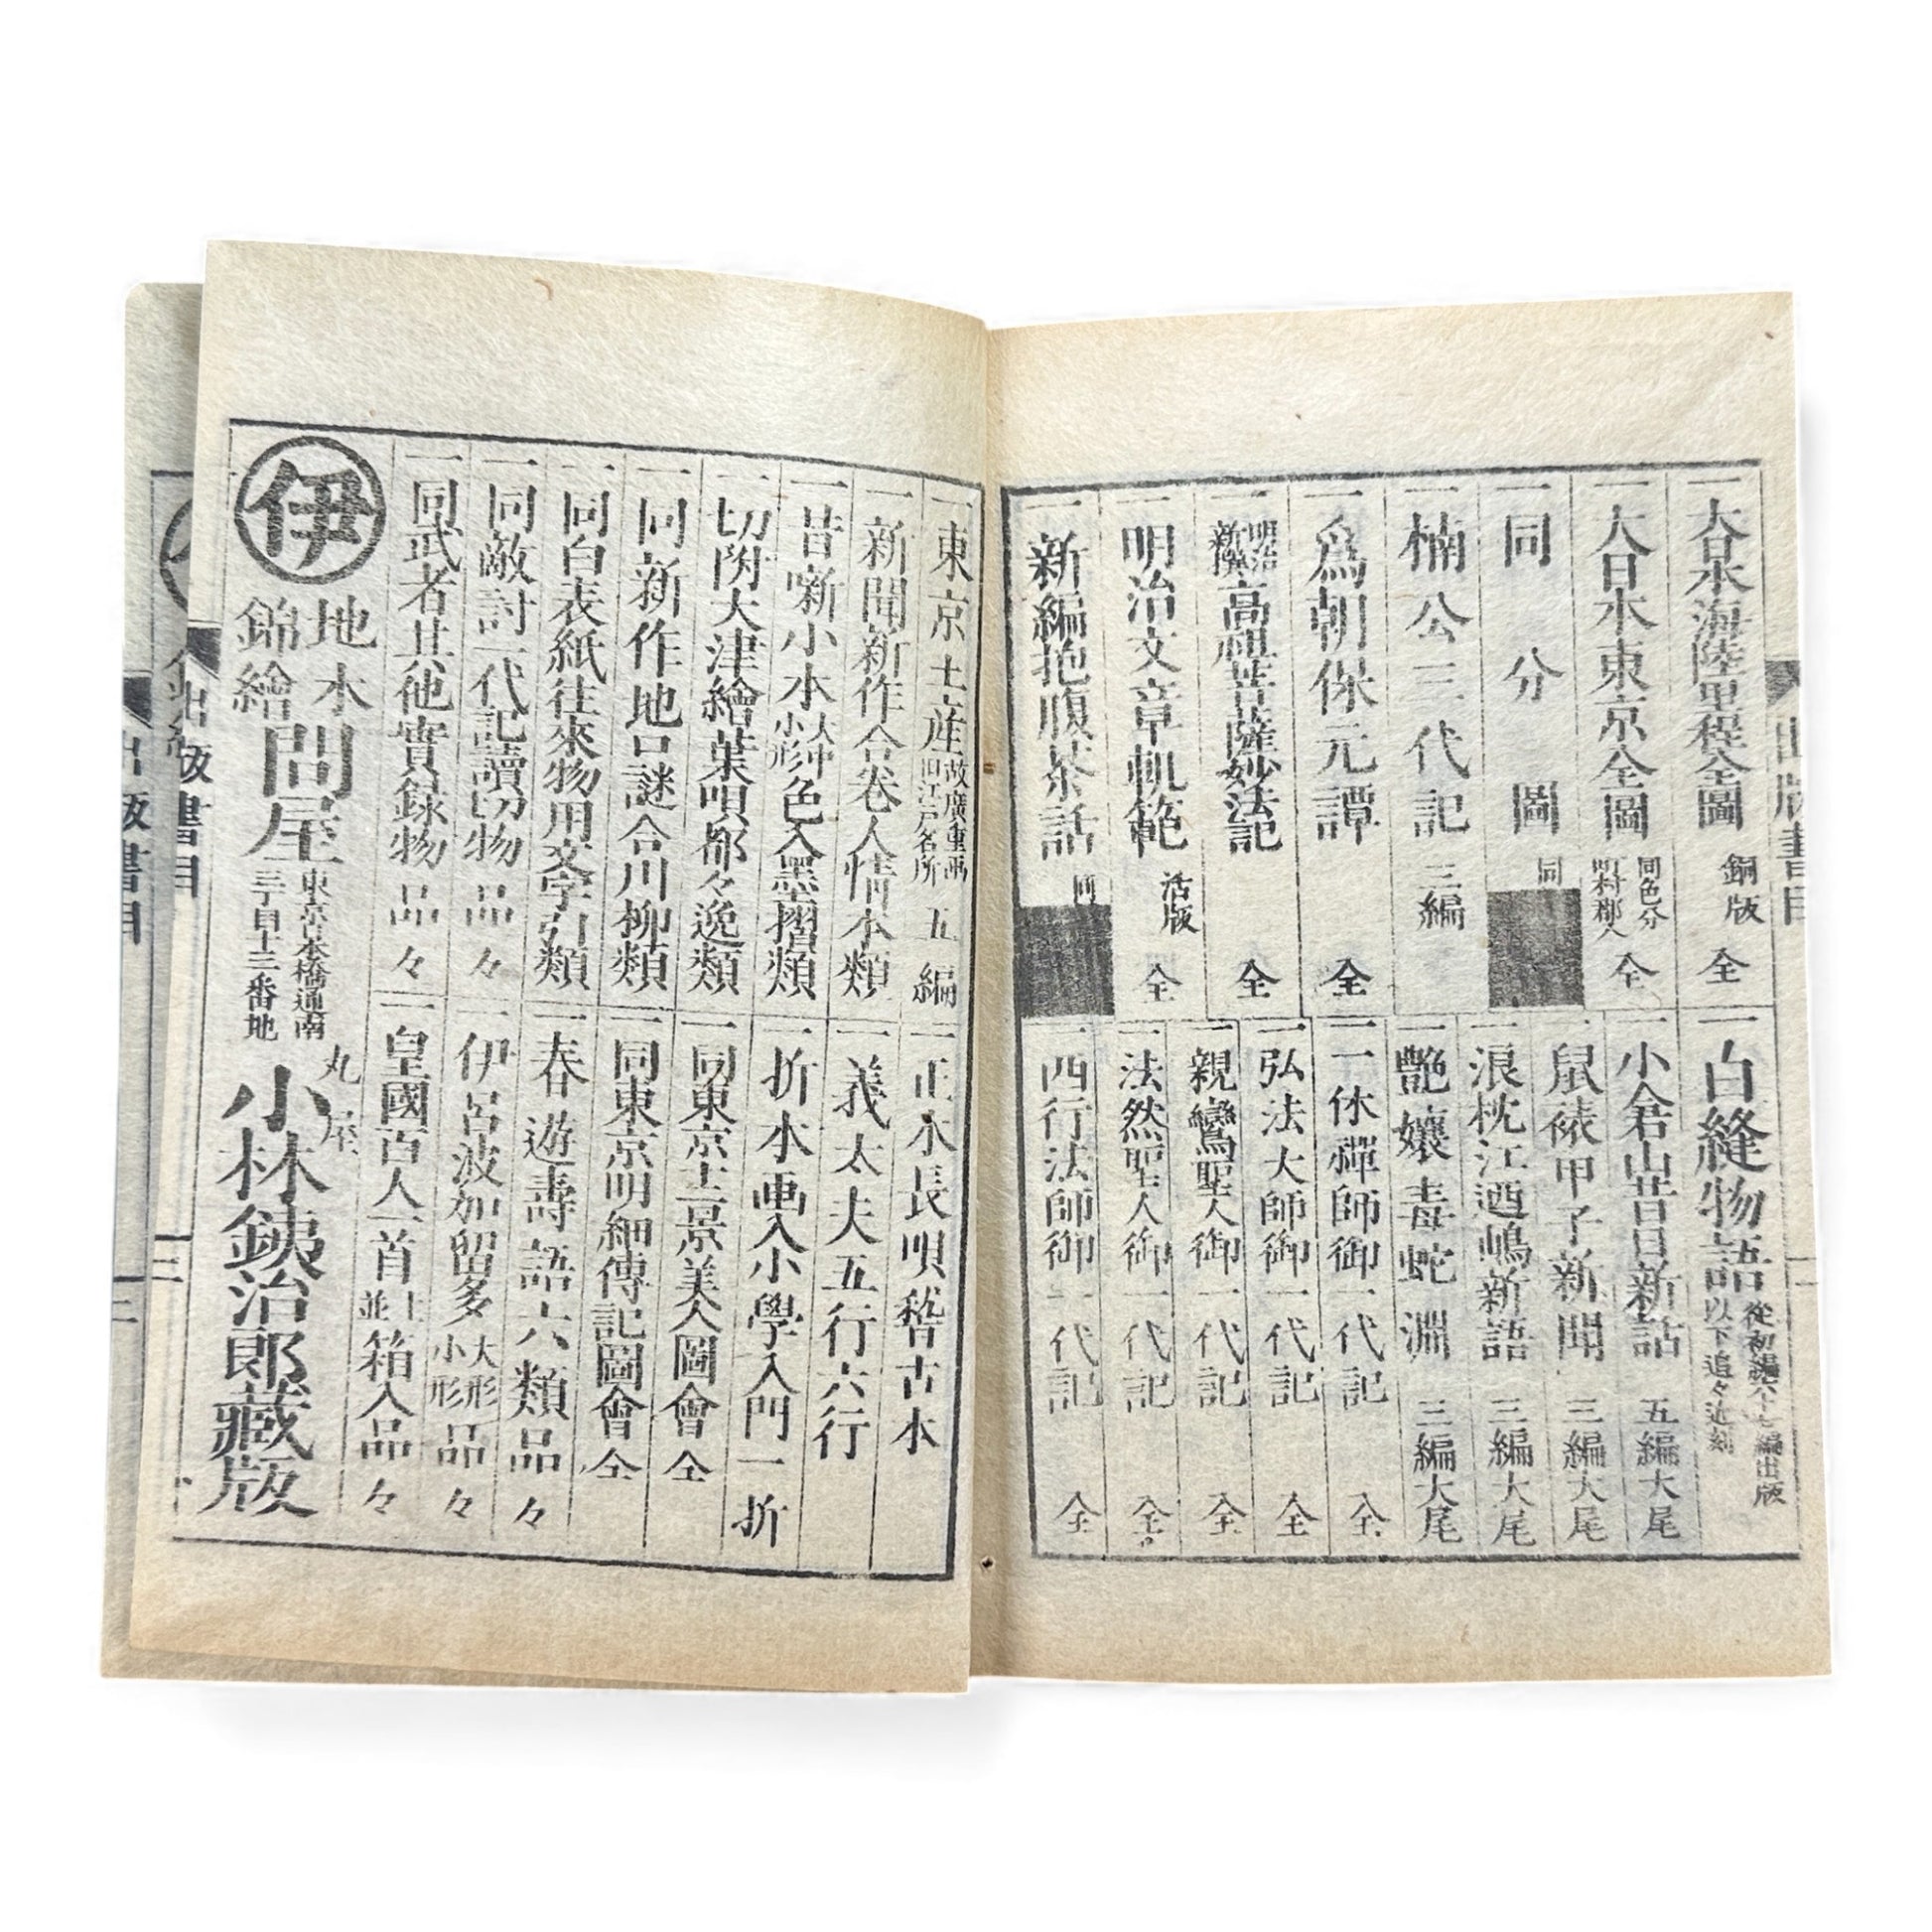 一大日本海陸里程全圖 銅版 全
一大日本東京全圖 同色分 全
一同分圖 同
一楠公三代記 三編
一爲朝保元譚 全
一明治新撰高祖菩薩妙法記 全
一明治文章軌範 活版 全
一新編抱腹茶話 同
一白縫物語 從初編六十七編出版 以下追々近刻
一小倉山昔日新話 五編大尾
一鼠裱甲子新聞 三編大尾
一浪枕江逎嶋新語 三編大尾
一艶孃毒蛇淵 三編大尾
一一休禪師御一代記 全
一弘法大師御一代記 全
一親鸞聖人御一代記 全
一法然聖人御一代記 全
一西行法師御一代記 全
一東京土産 故廣重画 旧江戸名所 五編
一新聞新作合巻人情本類
一昔噺小本 大中小形 色入墨摺類
一切附大津繪葉唄都々逸類
一同新作地口謎合川柳類
一同白表紙往來物用文字引類
一同敵討一代記讀切物品々
一同武者其他實録物品々
一正本長唄稽古本
一義太夫五行六行
一折本画入小學入門一折
一同東京十二景美人圖會 全
一同東京明細傳記圖會 全
一春遊壽語六類品々
一伊呂波加留多 大形 小形 品々
一皇國百人一首 上並 箱入品々
伊
地本
錦繪
問屋
東京日本橋通南
三丁目十三番地
丸屋
小林鉄治郎藏版
出版書目
出版書目
三
出版書目
二